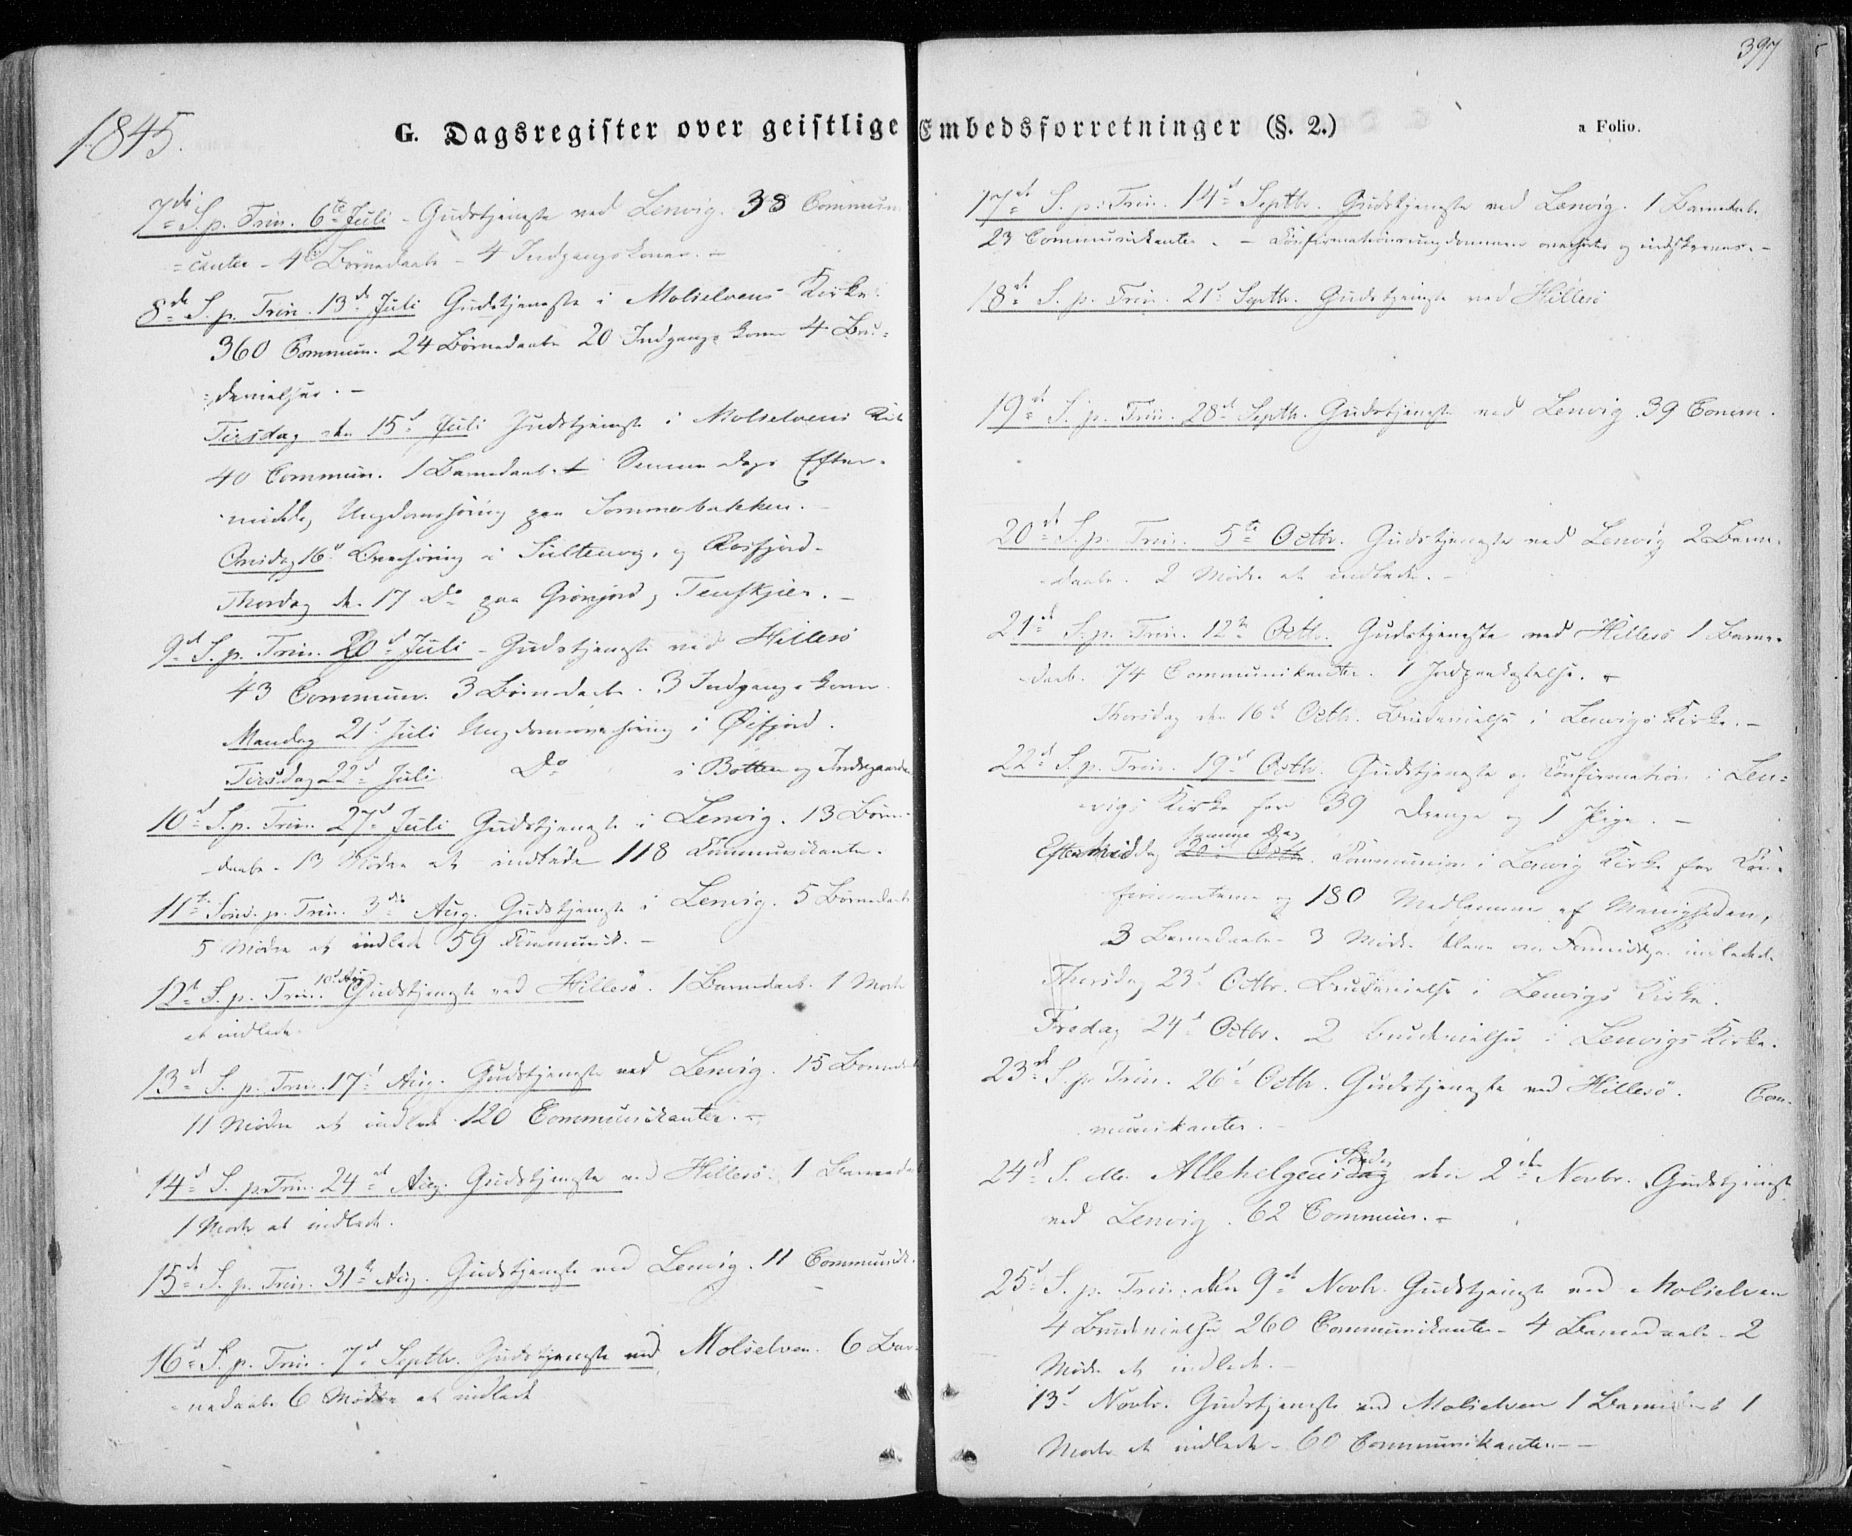 397
1845.
G. Dagsregister over geistlige Embedsforretninger (§. 2.)
a Folio.
7de S. p. Trin. 6te Juli - Gudstjeneste ved Lenvig. 38 Commun
=canter - 4 Børnedaab - 4 Indgangskoner. -
8de S. p. Trin. 13de Juli Gudstjeneste i Molselvens Kirke.
360 Commun. 24 Børnedaab 20 Indgangs koner 4 Bru=
=devielser. -
Tirsdag den 15d Juli Gudstjeneste i Molselvens
40 Commun. 1 Barnedaab. Samme Dags Efter=
middag Ungdomshøring paa Sommerbakken. -
Onsdag 16d Overhøring i og Rosfjord.
Thorsdag den 17 Do paa
9d S. p. Trin. 20d Juli - Gudstjeneste ved Hillesø
43 Commun. 3 Børnedaab. 3 Indgangs koner
Mandag 21d Juli Ungdomsoverhøring i Øifjord.
Tirsdag 22d Juli Do i Botten og Indregaarden
10d S. p. Trin. 27d Juli Gudstjeneste i Lenvig. 13 Børne=
daab. 13 Mødre at indlede 118 Communikanter.
11te Sønd. p. Trin. 3die Aug. Gudstjeneste i Lenvig. 5 Børnedaab
5 Mødre at indlede 59 Communik. -
12te S. p. Trin. 10d Aug Gudstjeneste ved Hillesø. 1 Barnedaab. 1 Moder
at indlede.
13d S. p. Trin. 17d Aug. Gudstjeneste ved Lenvig. 15 Børnedaab
11 Mødre at indlede 120 Communikanter. -
14d S. p. Trin. 24d Aug. Gudstjeneste ved Hillesø. 1 Barnedaab
1 Moder at indlede.
15d S. p. Trin. 31te Aug. Gudstjeneste ved Lenvig. 11 Communik.
16d S. p. Trin. 7d Septbr. Gudstjeneste ved Molselven. 6 Bar=
=nedaab 6 Mødre at indlede
17d S. p. Trin. 14d Septbr. Gudstjeneste ved Lenvig. 1 Barnedaab.
23 Communikanter. - Confirmationsungdommen overhørtes og indskreves. -
18d S. p. Trin. 21d Septbr. Gudstjeneste ved Hillesø
19d S. p. Trin. 28d Septb. Gudstjeneste ved Lenvig 39 Comm.
20d S. p. Trin. 5te Octbr. Gudstjeneste ved Lenvig 2 Barne=
daab. 2 Mødre at indlede. -
21d S. p. Trin. 12te Octb. Gudstjeneste ved Hillesø 1 Barne=
daab. 74 Communikanter. 1
Thorsdag den 16d Octb. Brudevielse i Lenvigs Kirke. -
22d S. p. Trin. 19d Octb. Gudstjeneste og Confirmation i Len=
vigs Kirke for 39 Drenge og 1 Pige. -
Eftermiddag samme Dag 20d Octb. Communion i Lenvig Kirke for Con=
firmanterne og 180 Medlemmer af Menigheden,
3 Barnedaab - 3 Mødre bleve om Formiddagen indledede
Thorsdag 23d Octbr. Brudevielse i Lenvigs Kirke.
Fredag 24d Octbr. 2 Brudevielser i Lenvigs Kirke.
23d S. p. Trin. 26d Octb. Gudstjeneste ved Hillesø. Com=
munikanter. -
24d S. Allehelgensdag Søndag den 2den Novbr. Gudstjeneste
ved Lenvig. 62 Commun. -
25d S. p. Trin. den 9d Novb. Gudstjeneste ved Molselven
4 Brudevielser 260 Communikanter - 4 Barnedaab - 2
Mødre at indlede. -
13d Novbr. Gudstjeneste ved Molselven 1 Barnedaab 1
Moder at indlede - 60 Communikanter. -